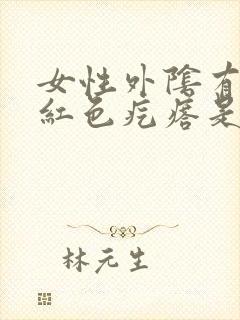 女性外陰有
紅色疙瘩是
林元生